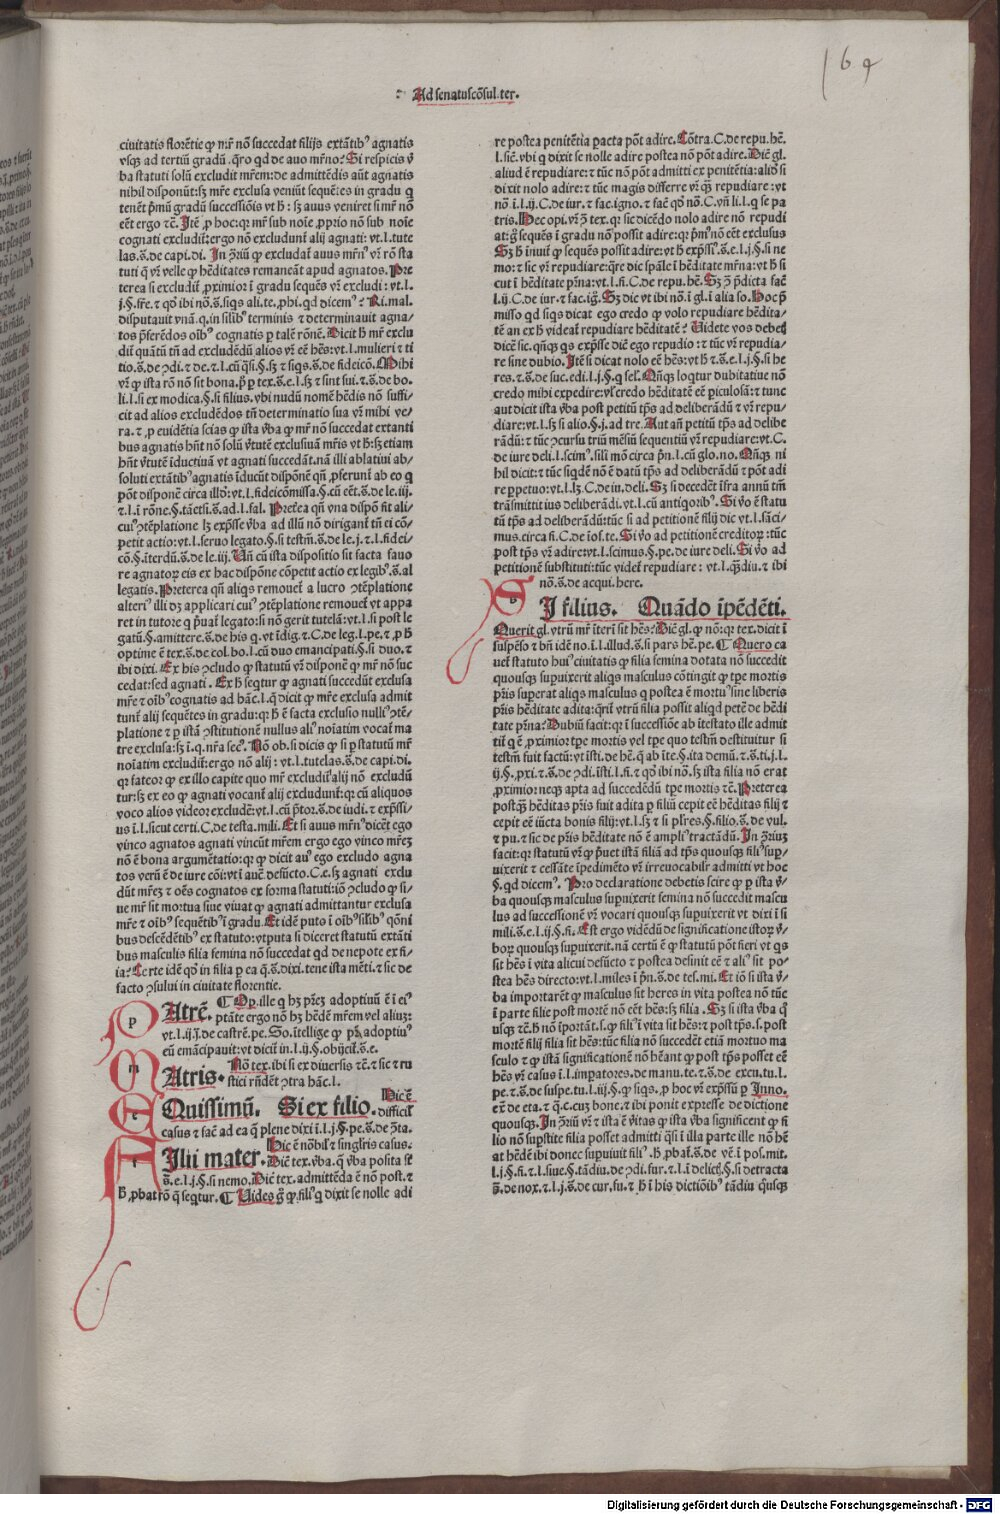 164
Ad senatuscõsul.ter.
ciuitatis florẽtie ꝙ mr̃ nõ succedat filijs extãtibꝰ agnatis
vsqꝫ ad tertiũ gradũ .q̃ro qd de auo mr̃no? Si respicis v̾
ba statuti solũ excludit mr̃em: de admittẽdis aũt agnatis
nihil disponũt: sꝫ mr̃e exclusa veniũt sequẽ: es in gradu q
tenẽt p̃mũ gradũ successiõis vt ħ: sꝫ auus veniret si mr̃ nõ
eẽt ergo ⁊c̃. Itẽ ꝓ hoc: qꝛ mr̃ sub noĩe ꝓprio nõ sub noĩe
cognati excludit̃: ergo nõ excludunt̃ alij agnati: vt.l.tute
las.ff.de capi.di. In ꝯr̃iũ ꝙ excludat̃ auus mr̃nꝰ vr̃ rõ sta
tuti q̃ vr̃ velle ꝙ hẽditates remaneãt apud agnatos. Pre
terea si excludit̃ ꝓximior ĩ gradu sequẽs vr̃ excludi: vt.l.
disputauit vnã.q.in sil̾ibꝰ terminis ⁊ determinauit agna-
tos p̃ferẽdos oĩbꝰ cognatis ꝑ talẽ rõnẽ. Dicit ħ mr̃ exclu
dit̃ quãtũ tñ ad excludẽdũ alios vr̃ eẽ hẽs: vt.l.mulieri ⁊ ti
vr̃ ꝙ ista rõ nõ sit bona.p̃ ꝑ tex.ff.e.l.sꝫ ⁊ sint sui.⁊.ff.de bo.
li.l.si ex modica.§.si filius. vbi nudũ nomẽ hẽdis nõ suffi-
cit ad alios excludẽdos tñ determinatio sua vr̃ mihi ve-
ra.⁊.ꝓ euidẽtia scias ꝙ ista v̾ba ꝙ mr̃ nõ succedat extanti
bus agnatis hñt nõ solũ v̾tutẽ exclusiuã mr̃is vt ħ: sꝫ etiam
hñt v̾tutẽ ĩductiuã vt agnati succedãt. nã illi ablatiui ab/
soluti extãtibꝰ agnatis ĩducũt dispõnẽ qñ ꝓferunt̃ ab eo q
põt disponẽ circa illoꝝ: vt.l.fideicõmissa.§.cũ eẽt.ff.de le.iij.
⁊.l.ĩ rõne.§.tãctsi.ff.ad.l.fal. Preterea qñ vna dispõ fit ali-
cuiꝰ ꝯtẽplatione lꝫ exp̃sse v̾ba ad illũ nõ dirigant̃ tñ ei cõ-
petit actio: vt.l.seruo legato.§.si testm̃.ff.de le.j.⁊.l.fidei-
cõ.§.ĩterdũ.ff.de le.iij. Uñ cũ ista dispositio sit facta fauo
re agnatoꝝ eis ex hac dispõne cõpetit actio ex legibꝰ.ff.al
legatis. Preterea qñ aliqs remouet̃ a lucro ꝯtẽplatione
alteriꝰ illi dꝫ applicari cuiꝰ ꝯtẽplatione remouet̃ vt appa
ret in tutore q p̃uat̃ legato: si nõ gerit tutelã: vt.l.si post le
gatũ.§.amittere.ff.de his q.vt ĩdig.⁊.C.de leg.l.pe.⁊ ꝓ ħ
optime ẽ tex.ff.de col.bo.l.cũ duo emancipati.§.si duo.⁊
ibi dixi. Ex his ꝯcludo ꝙ statutũ vr̃ disponẽ ꝙ mr̃ nõ suc
cedat: sed agnati. Ex ħ seqtur ꝙ agnati succedũt exclusa
mr̃e ⁊ oĩbꝰ cognatis ad hãc.l.q̃ dicit ꝙ mr̃e exclusa admit
tunt̃ alij sequẽtes in gradu: qꝛ ħ ẽ facta exclusio nulliꝰ ꝯtẽ-
platione ⁊ ꝑ istã ꝯstitutionẽ nullus aliꝰ noĩatim vocat̃ ma
tre exclusa: sꝫ ĩ.q.nr̃a secꝰ. Nõ ob.si dicis ꝙ si ꝑ statutũ mr̃
noĩatim excludit̃: ergo nõ alij: vt.l.tutelas.ff.de capi.di.
qꝛ fateor ꝙ ex illo capite quo mr̃ excludit̃ alij nõ excludũ
tur: sꝫ ex eo ꝙ agnati vocant̃ alij excludunt̃: qꝛ cũ aliquos
voco alios videor excludẽ: vt.l.cũ p̃tor.ff.de iudi.⁊ exp̃ssi-
us ĩ.l.sicut certi.C.de testa.mili. Et si auus mr̃nꝰ dicẽt ego
vinco agnatos agnati vincũt mr̃em ergo ego vinco mr̃eꝫ
nõ ẽ bona argumẽtatio: qꝛ ꝙ dicit auꝰ ego excludo agna
dũt mr̃eꝫ ⁊ oẽs cognatos ex forma statuti: iõ ꝯcludo ꝙ si-
ue mr̃ sit mortua siue viuat ꝙ agnati admittantur exclusa
mr̃e ⁊ oĩbꝰ sequẽtibꝰ ĩ gradu. Et idẽ puto ĩ oĩbꝰ sil̾ibꝰ qõni
bus descẽdẽtibꝰ ex statuto: vtputa si diceret statutũ extãti
bus masculis filia femina nõ succedat qd de nepote ex fi-
ia? Certe idẽ qꝰ in filia ꝑ ea q̃.ff.dixi. tene ista mẽti.⁊ sic de
facto ꝯsului in ciuitate florentie.
PAtrẽ. ¶ Op.ille q hꝫ pr̃eꝫ adoptiuũ ẽ ĩ eiꝰ
ptãte ergo nõ hꝫ hẽdẽ mr̃em vel aliuꝫ:
vt.l.ij.ĩ.de castrẽ.pe. So.ĩtellige ꝙ pr̃ adoptiuꝰ
eũ emãcipauit: vt dicit̃ in.l.ij.§.obijcit̃.ff.e.
MAtris. Nõ tex.ibi si ex diuersis ⁊c̃.⁊ sic ⁊ ru
stici rñdẽt ꝯtra hãc.l.
TEquissimũ. Si ex filio. Hic ẽ difficil̾
casus ⁊ facit ad ea q̃ plene dixi ĩ.l.j.§.pe.ff.de ꝯ̃ta.
FIlii mater. Hic ẽ nõbil̾ ⁊ singl̾ris casus.
Dic̃t tex.v̾ba.q̃ v̾ba posita sẽ
ff.e.l.j.§.si nemo. Dic̃t tex.admittẽda ẽ nõ post.⁊
ħ ꝓbat rõ q̃ seqtur. ¶ Uides g̃ ꝙ.filiꝰ q dixit se nolle adi
re postea penitẽtia pacta põt adire. Cõtra.C.de repu.hẽ.
l.sicẽ.vbi q dixit se nolle adire postea nõ põt adire. Dic̃t gl.
aliud ẽ repudiare: ⁊ tũc nõ põt admitti ex penitẽtia: aliꝰ si
dixit nolo adire: ⁊ tũc magis differre vr̃ qꝫ repudiare: vt
nõ ĩ.l.ij.C.de iur.⁊ fac.igno.⁊ facit qꝰ nõ.C.vñ li.l.q se pa
tris. Hec opi.vr̃ ꝯ̃ tex.qꝛ sic dicẽdo nolo adire nõ repudi
at: g̃ sequẽs ĩ gradu nõ possit adire: qꝛ p̃mꝰ nõ eẽt exclusus
Sꝫ ħ ĩnuit̃ ꝙ sequẽs possit adire: vt ħ exp̃ssiꝰ.ff.e.l.j.§.si ne
mo: ⁊ sic vr̃ repudiare: q̃re dic sp̃ale ĩ hẽditate mr̃na: vt ħ si
cut ĩ hẽditate pr̃na: vt.l.fi.C.de repu.hẽ. Sꝫ ꝯ̃ p̃dicta facit
l.ij.C.de iur.⁊ fac.ig̃. Sꝫ dic vt ibi nõ.ĩ gl.ĩ alia so. Hoc p̃
misso qd siqs dicat ego credo ꝙ volo repudiare hẽdita-
tẽ an ex ħ videat̃ repudiare hẽditatẽ? Uidete vos debet̃
dicẽ sic.qñqꝫ qs exp̃sse dic̃t ego repudio: ⁊ tũc vr̃ repudia-
re sine dubio. Itẽ si dicat nolo eẽ hẽs: vt ħ ⁊.ff.e.l.j.§.si he
res.⁊.ff.de suc.edi.l.j.§.q sel̾. Qñqꝫ loqtur dubitatiue nõ
credo mihi expedire: vl̾ credo hẽditatẽ eẽ ꝑiculosã: ⁊ tunc
aut dicit ista v̾ba post petitũ tp̃s ad deliberãdũ ⁊ vr̃ repu-
diare: vt.l.sꝫ si alio.§.j.ad tre. Aut añ petitũ tp̃s ad delibe
rãdũ: ⁊ tũc ꝯcursu triũ mẽsiũ sequentiũ vr̃ repudiare: vt.C.
de iure deli.l.scimꝰ.sil̾ nõ circa p̃n.l.cũ glo.no. Qñqꝫ ni
hil dicit: ⁊ tũc siqdẽ nõ ẽ datũ tp̃s ad deliberãdũ ⁊ põt adi
re ꝑpetuo: vt.l.lꝫ.C.de iu.deli. Sꝫ si decedẽt ĩfra annũ tm̃
trãsmittit ius deliberãdi.vt.l.cũ antiqoribꝰ. Si v̾o ẽ statu
tũ tp̃s ad deliberãdũ: tũc si ad petitionẽ filij dic vt.l.sãci-
mus.circa fi.C.de iof.te. Si v̾o ad petitionẽ creditoꝝ: tũc
post tp̃s vr̃ adire: vt.l.scimus.§.pe.de iure deli. Si v̾o ad
petitionẽ substituti: tũc videt̃ repudiare: vt.l.qꝫdiu.⁊ ibi
nõ.ff.de acqui.here.
SI filius. Quãdo ĩpẽdẽti.
Querit gl.vtrũ mr̃ iterĩ sit hẽs? Dic̃t gl.ꝙ nõ: qꝛ tex.dicit ĩ
suspẽso ⁊ bñ idẽ no.ĩ.l.illud.ff.si pars hẽ.pe. ¶ Quero ca
uet̃ statuto huiꝰ ciuitatis ꝙ filia femina dotata nõ succedit
quousqꝫ supuixerit aliqs masculus cõtingit ꝙ tp̃e mortis
pr̃is superat aliqs masculus q postea ẽ mortuꝰ sine liberis
pr̃is hẽditate adita: q̃rit̃ vtrũ filia possit aliqd petẽ de hẽdi
tate pr̃na? Dubiũ facit: qꝛ ĩ successiõe ab ĩtestato ille admit
tit̃ q ẽ ꝓximior tp̃e mortis vel tp̃e quo testm̃ destituitur si
testm̃ fuit factũ: vt ĩsti.de hẽ.q̃ ab ĩte.§.ita demũ.⁊.ff.ti.j.l.
ij.§.ꝓxi.⁊.ff.de ꝯdi.ĩsti.l.fi.⁊ qꝰ ibi nõ. sꝫ ista filia nõ erat
ꝓximior: neqꝫ apta ad succedẽdũ tp̃e mortis ⁊c̃. Preterea
postqꝫ hẽditas pr̃is fuit adita ꝑ filiũ cepit eẽ hẽditas filij ⁊
cepit eẽ iũcta bonis filij: vt.l.sꝫ ⁊ si pl̾res.§.filio.ff.de vul.
⁊ pu.⁊ sic de pr̃is hẽditate nõ ẽ ampliꝰ tractãdũ. In ꝯr̃iuꝫ
facit: qꝛ statutũ vr̃ ꝙ p̃uet istã filiã ad tp̃s quousqꝫ filiꝰ supr̃-
uixerit ⁊ cessãte ĩpedimẽto vr̃ irreuocabilr̃ admitti vt hoc
§.qd dicemꝰ. Pro declaratione debetis scire ꝙ ꝑ ista v̾-
ba quousqꝫ masculus supuixerit femina nõ succedit mascu
lus ad successionẽ vr̃ vocari quousqꝫ supuixerit vt dixi ĩ si
mili.ff.e.l.ij.§.fi. Est ergo vidẽdũ de significatione istoꝝ v̾-
boꝝ quousqꝫ supuixerit. nã certũ ẽ ꝙ statutũ põt fieri vt qs
sit hẽs ĩ vita alicui defũcto ⁊ postea desinit eẽ ⁊ aliꝰ sit po-
stea hẽs directo: vt.l.miles ĩ p̃n.ff.de tes.mi. Et iõ si ista v̾-
ba importarẽt ꝙ masculus sit heres in vita postea nõ tũc
ĩ parte filie post mortẽ nõ eẽt hẽs: sꝫ filia. Sꝫ si ista v̾ba q̃
usqꝫ ⁊c̃.ħ nõ ĩportãt.s.ꝙ filiꝰ ĩ vita sit hẽs: ⁊ post tp̃s.s.post
mortẽ filij filia sit hẽs: tũc filia nõ succedẽt etiã mortuo ma
sculo ⁊ ꝙ istã significationẽ nõ hẽant ꝙ post tp̃s posset eẽ
hẽs vr̃ casus ĩ.l.impatores.de manu.te.⁊.ff.de excu.tu.l.
pe.⁊.ff.de suspe.tu.l.iij.§.ꝙ siqs.ꝓ hoc vr̃ exp̃ssũ ꝑ Inno.
ex̃ de eta.⁊ q̃.c.cuꝫ bone.⁊ ibi ponit expresse de dictione
quousqꝫ. In ꝯr̃iũ vr̃ ⁊ ista ẽ v̾itas ꝙ ista v̾ba significent ꝙ fi
lio nõ supstite filia posset admitti q̃si ĩ illa parte ille nõ hẽ
at hẽdẽ ibi donec supuiuit filiꝰ.ħ.ꝓbat̃.ff.de v̾.ĩ pos.mit.
l.j.§.fi.⁊.l.siue.§.tãdiu.de ꝯdi.fur.⁊.l.ĩ delict̃.§.si detracta
ff.de nox.⁊.l.j.ff.de cur.fu.⁊ ħ ĩ his dictiõibꝰ tãdiu q̃usqꝫ
Digitalisierung gefördert durch die Deutsche Forschungsgemeinschaft - DFG